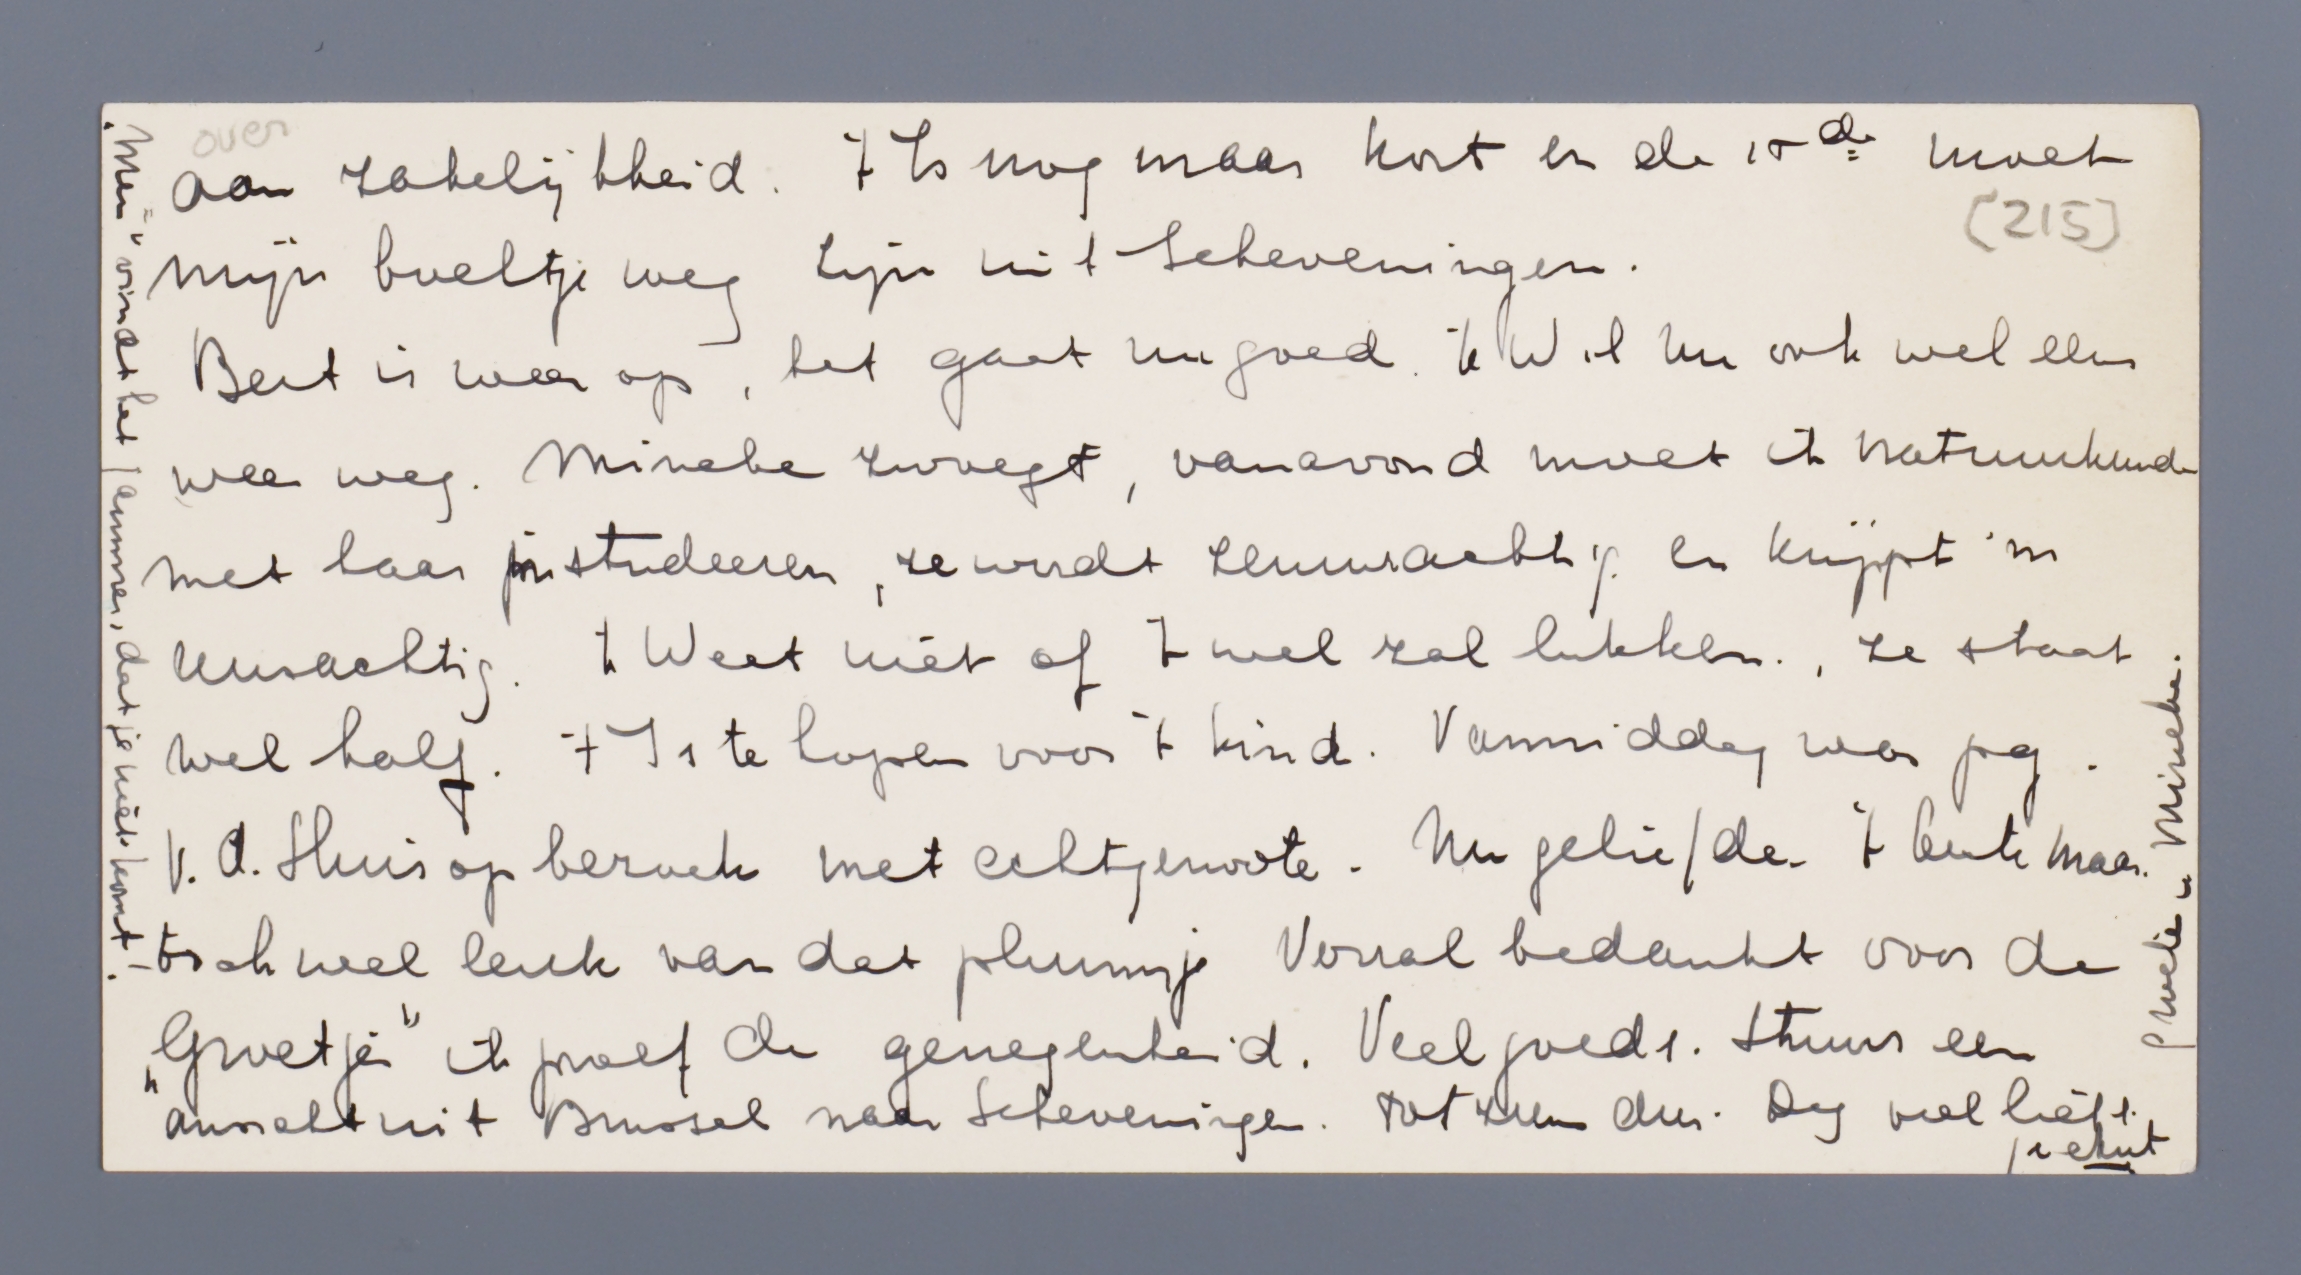 over
aan zakelijkheid. 't Is nog maar kort en de 15de moet
[215]
mijn boeltje weg zijn uit Scheveningen.
Bert is weer op, het gaat nu goed. ik Wil nu ook wel eens
weer weg. Mineke zwoegt, vanavond moet ik natuurkunde
met haar instudeeren, ze wordt zenuwachtig en knijpt 'm
unsachtig. 't Weet niét of 't wel zal lukken., ze staat
wel half. 't Is te hopen voor 't kind. Vanmiddag was
V. d. Sluis op bezoek met echtgenoote. Nu geliefde 't beste maar.
toch wel leuk van dat pluimpje Vooral bedankt voor de
"Groetjes" ik proef de genegenheid. Veel goeds. Stuur een
ansicht uit Brussel naar Scheveningen. tot ziens dus. Dag veel liefs.
"Mien" vindt het jammer, dat je niét komt!
"Mineke.